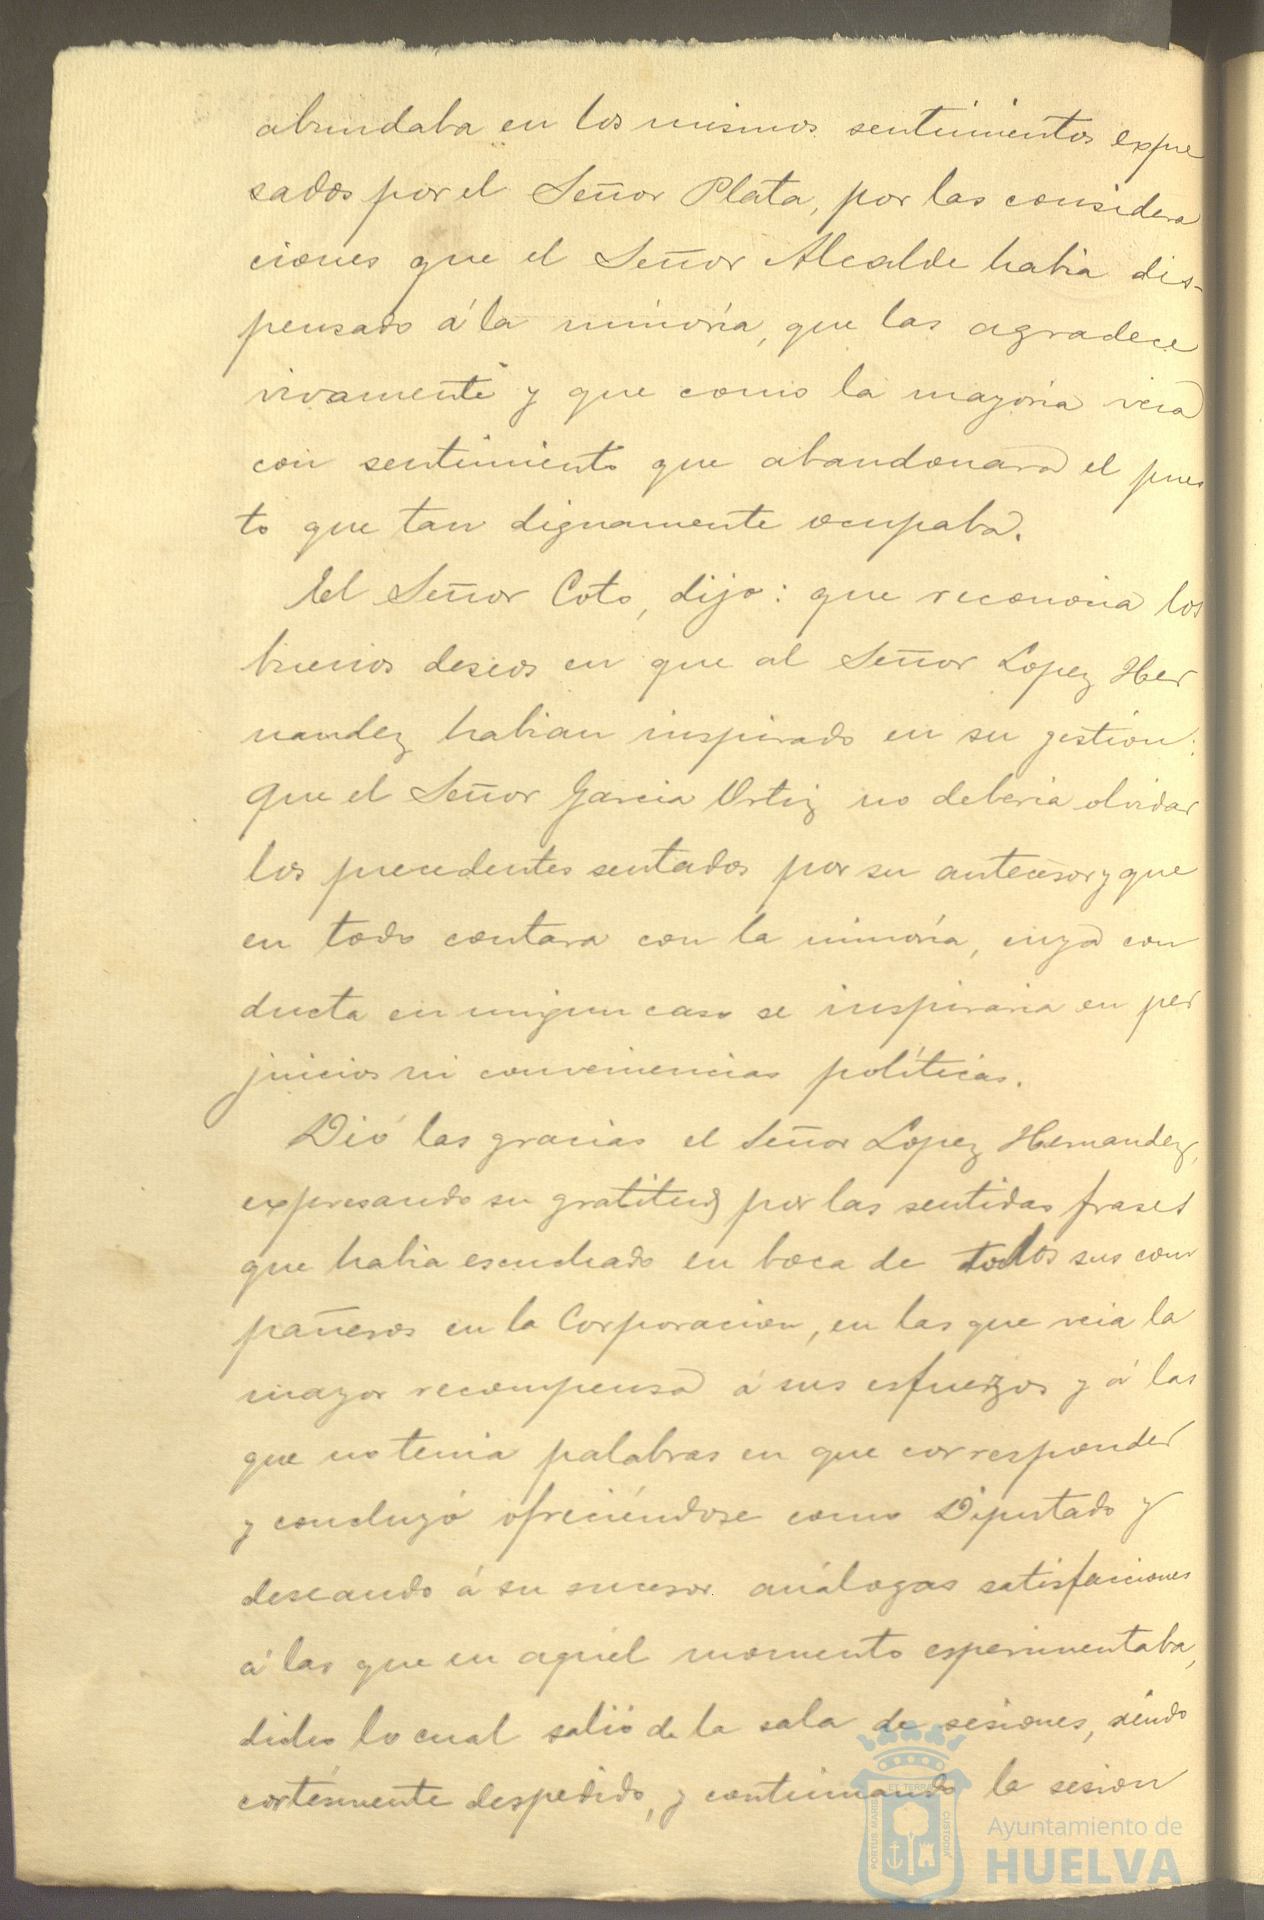 abundaba en los mismos sentimientos expre
sados por el Señor Plata, por las considera
ciones que el Señor Alcalde habia dis-
pensado á la minoría, que las agradece
vivamente y que como la mayoría veia
con sentimiento que abandonara el pues
to que tan dignamente ocupaba.
El Señor Coto, dijo: que reconocia los
buenos deseos en que al Señor Lopez Her
nandez habian inspirado en su gestion:
que el Señor Garcia Ortiz no deberia olvidar
los precedentes sentados por su antecesor y que
en todo contara con la minoría, cuya con
ducta en ningun caso se inspiraria en per
juicios ni conveniencias políticas.
Dió las gracias el Señor Lopez Hernandez,
expresando su gratitud por las sentidas frases
que habia escuchado en boca de todos sus com
pañeros en la Corporacion, en las que veia la
mayor recompensa á sus esfuerzos y á las
que no tenia palabras en que corresponder
y concluyó ofreciéndose como Diputado y
deseando á su sucesor análogas satisfacciones
á las que en aquel momento esperimentaba,
dicho lo cual salió de la sala de sesiones, siendo
cortésmente despedido, y continuando la sesion
PORTUS MARIS ET TERRAE CUSTODIA
Ayuntamiento de
HUELVA